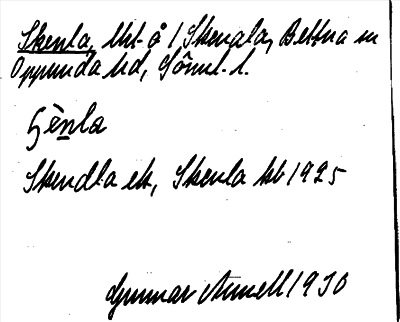 Skenla, lht å 1 Skenala, Bettna sn
Oppunda hd, Söml. l.
ʃènla
Skendla ek, Skenla kb 1925
Gunnar Annell 1930